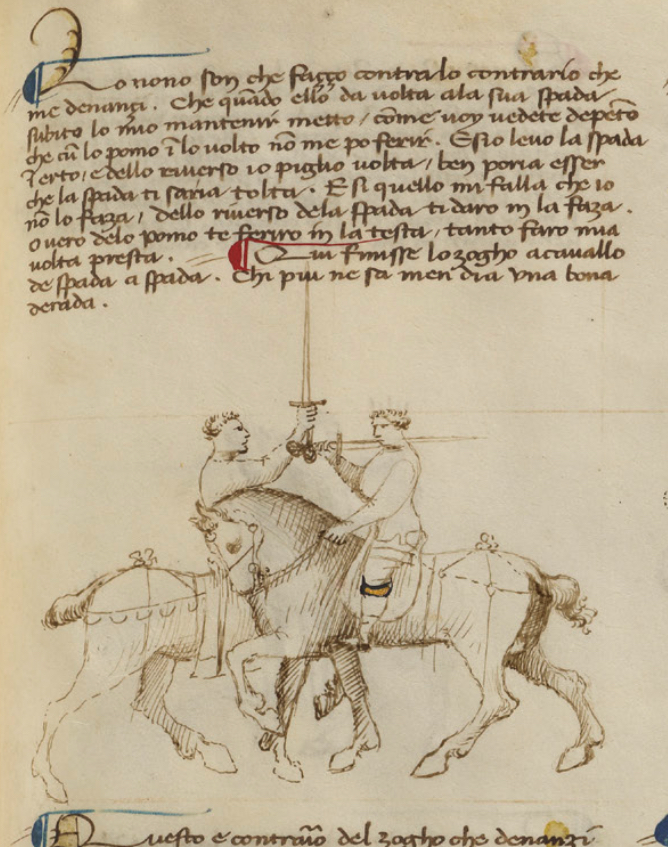 Lo nono son che fazzo contra lo contrario che
me denançi. Che quãdo ello da volta ala sua spada
subito lo mio mantenir metto / come voy vedete depẽto
che cũ lo pomo ĩ lo volto nõ me po ferir. E sio levo la spada
ĩ erto, e dello riverso io piglio volta / ben poria esser
che la spada ti saria tolta. E si quello mi falla che io
nõ lo faza / dello riverso dela spada ti daro in la faza.
o vero delo pomo te feriro in la testa, tanto faro mia
volta presta. Qui finisse lo zogho a cavallo
de spada a spada. Chi piu ne sa men dia una bona
derada.
Questo e contraio del zogho che denanzi